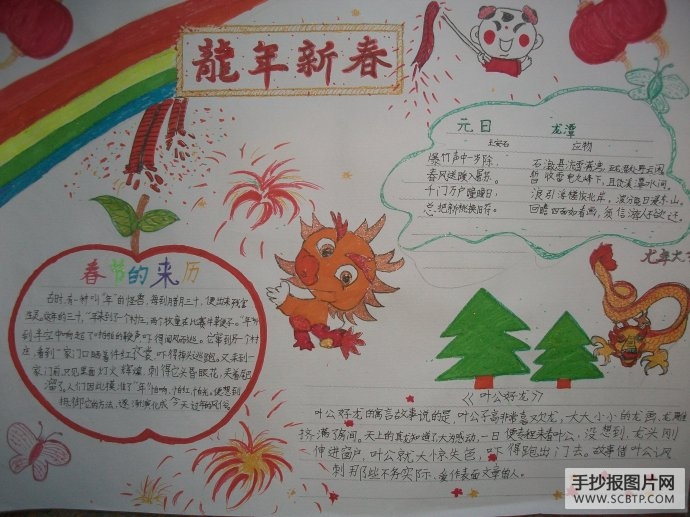 龍年新春
元日 龙潭
王安石 应物
爆竹声中一岁除
春风送暖入屠苏
千门万户曈曈日
总把新桃换旧符
石激悬流雪满湾
暂收雷电九峰下
浪引浮槎依北岸
回瞻四面如看画,须信游人不欲还。
龙年大
春节的来历
古时,有一种叫"年"的怪兽,每到腊月三十,便出来残害
生灵。这年的三十,"年"来到了一个村庄,两个牧童在比赛牛鞭子。"年"听
到半空中响起了啪啪的鞭声,吓得闻风而逃。它窜到另一个村
庄,看到一家门口晒着件红衣裳,吓得掉头逃跑。又来到一
家门前,只见里面灯火辉煌,刺得它头昏眼花,夹着尾巴
溜了。人们因此摸准了"年"怕响、怕红、怕光,便想到
抵御它的方法,逐渐演化成今天过年的风俗
《叶公好龙》
叶公好龙的寓言故事说的是,叶公子高非常喜欢龙,大大小小的龙
挤满了房间。天上的真龙知道了大为感动,一日便专程来看叶公,没想到,龙头刚
伸进窗户,叶公就大惊失色,吓得跑出门去。故事借叶公讽
刺那些不务实际、爱作表面文章的人。
手抄报图片网
WWW.SCBTP.COM